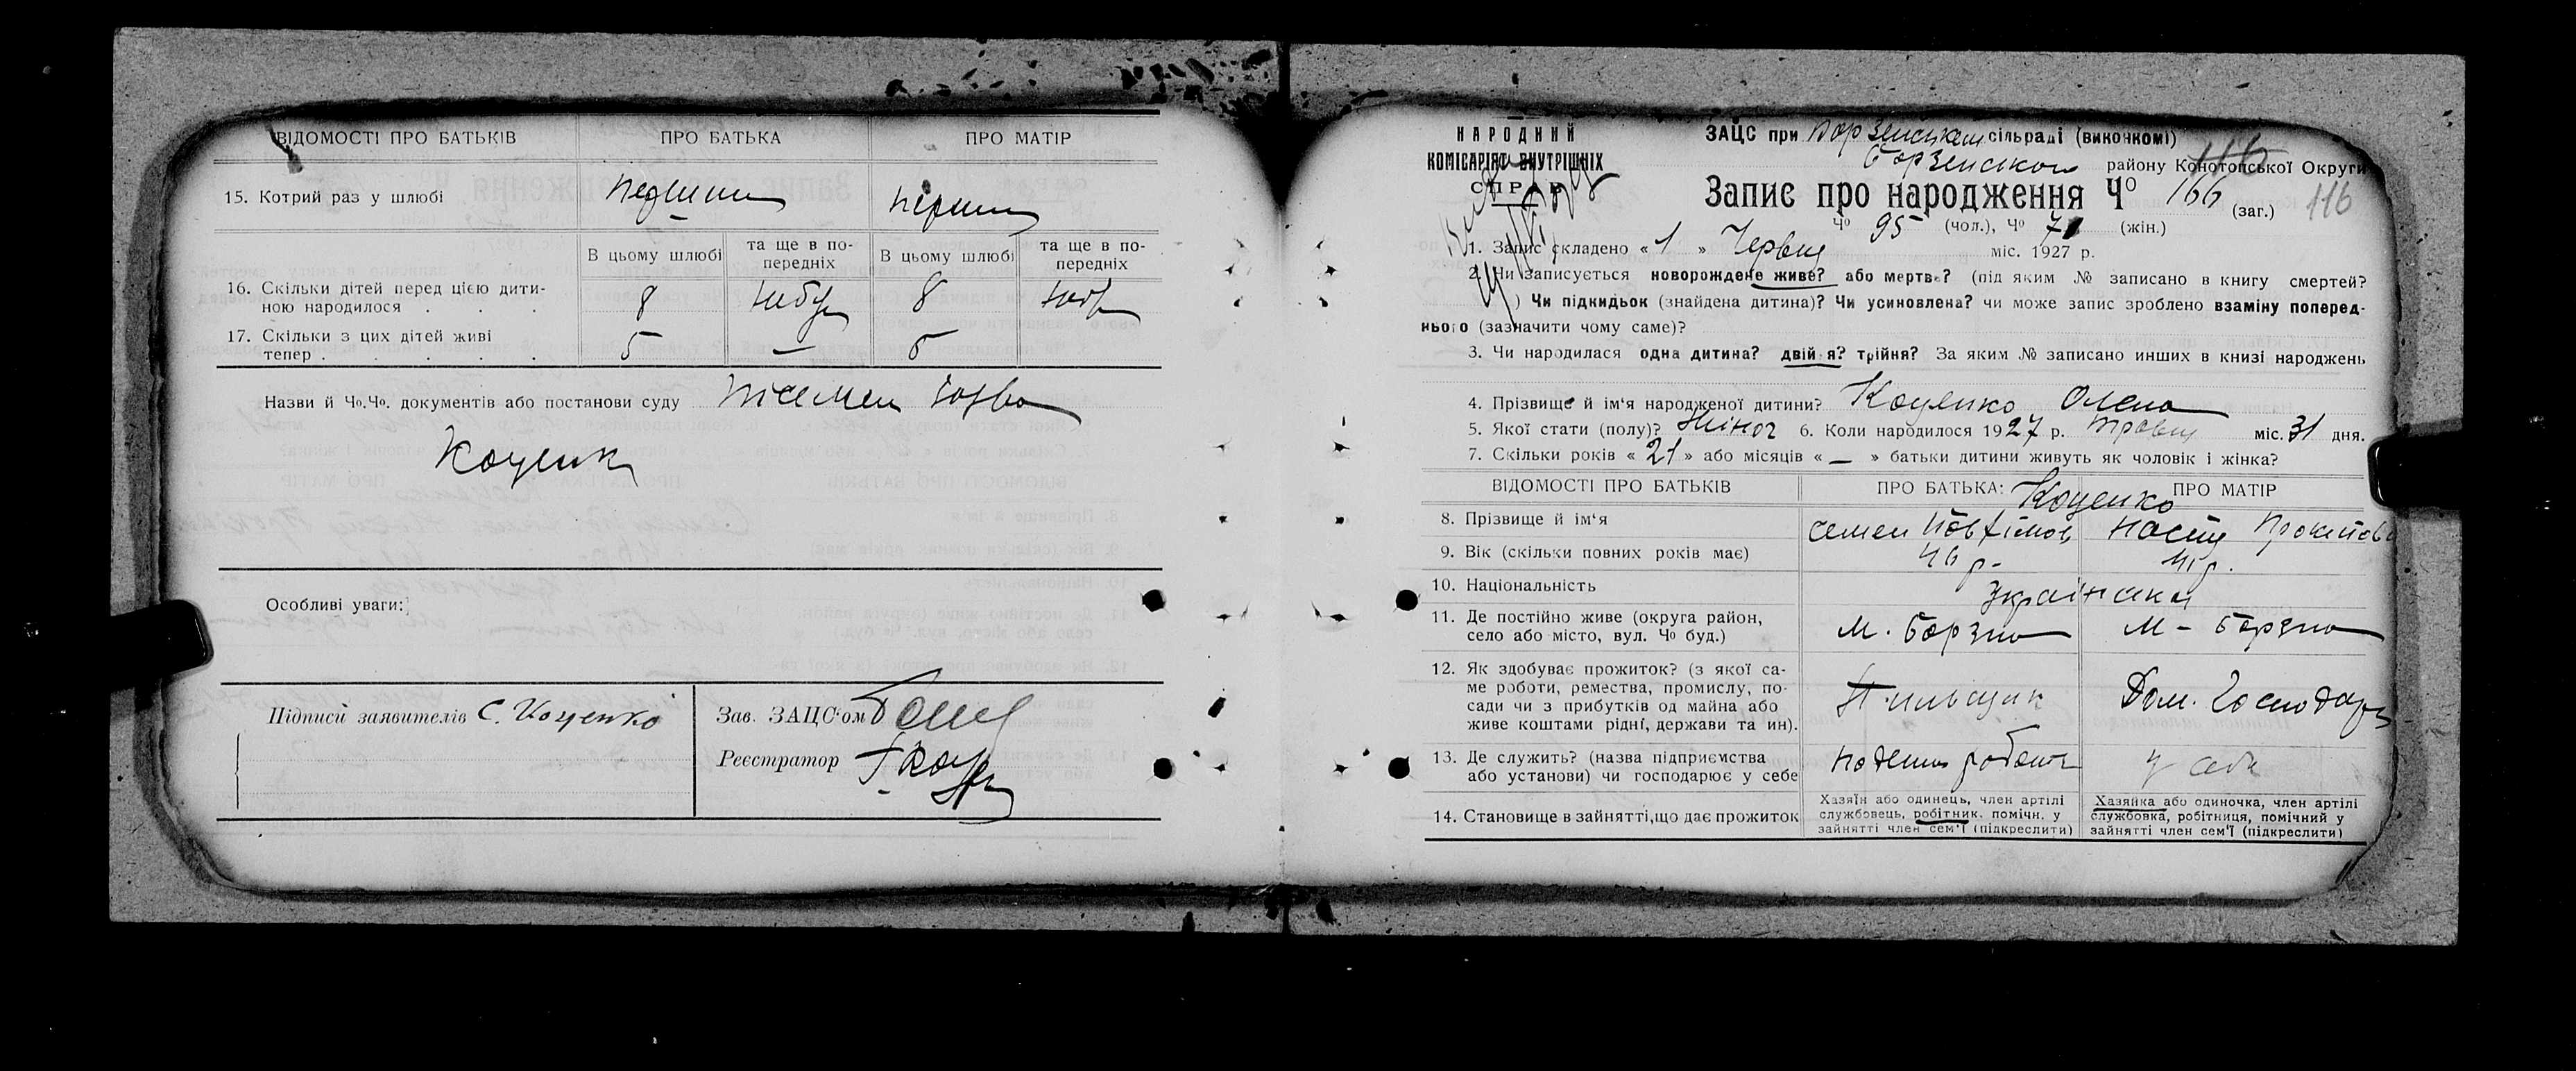 ВІДОМОСТІ ПРО БАТЬКІВ ПРО БАТЬКА ПРО МАТІР
15. Котрий раз у шлюбі перший
В цьому шлюбі та ще в по-передніх В цьому шлюбі та ще в по-передніх
16. Скільки дітей перед цією дити-
ною народилося . . . 8 8
17. Скільки з цих дітей живі
тепер . . . . . 5 — 5
Назви й Чо.Чо. документів або постанови суду
Коценк
Особливі уваги:
Підписи заявителів С. Коценко Зав. ЗАЦС'ом
Реєстратор
НАРОДНИЙ
КОМІСАРІЯТ ВНУТРІШНІХ
СПРАВ
ЗАЦС при Борзенském сільраді (виконкомі)
Борзенського району Конотопської Округи
116
Запис про народження Чо 166 (заг.) 116
Чо 95 (чол.), Чо 71 (жін.)
1. Запис складено « 1 » Червня міс. 1927 р.
2. Чи записується новорождене живе? або мертве? (під яким № записано в книгу смертей?
) Чи підкидьок (знайдена дитина)? Чи усиновлена? чи може запис зроблено взаміну поперед-
нього (зазначити чому саме)?
3. Чи народилася одна дитина? двійня? трійня? За яким № записано инших в книзі народжень
4. Прізвище й ім'я народженої дитини? Коценко Олена
5. Якої стати (полу)? Жіноч 6. Коли народилося 1927 р. травня міс. 31 дня.
7. Скільки років « 21 » або місяців « — » батьки дитини живуть як чоловік і жінка?
ВІДОМОСТІ ПРО БАТЬКІВ ПРО БАТЬКА: ПРО МАТІР
Коценко
8. Прізвище й ім'я Семен Настя
9. Вік (скільки повних років має) 46 р. 41 р.
10. Національність Українська
11. Де постійно живе (округа район,
село або місто, вул. Чо буд.) м. Борзна м - Борзна
12. Як здобуває прожиток? (з якої са-
ме роботи, ремества, промислу, по-
сади чи з прибутків од майна або
живе коштами рідні, держави та ин). Пильщик Дом. Господар
13. Де служить? (назва підприємства
або установи) чи господарює у себе поденно у себе
14. Становище в зайнятті, що дає прожиток
Хазяїн або одинець, член артілі
службовець, робітник. помічн. у
зайнятті член сем'ї (підкреслити)
Хазяйка або одиночка, член артілі
службовка, робітниця, помічний у
зайнятті член сем'ї (підкреслити)